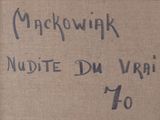 MACKOWIAK
NUDITE DU VRAI
70